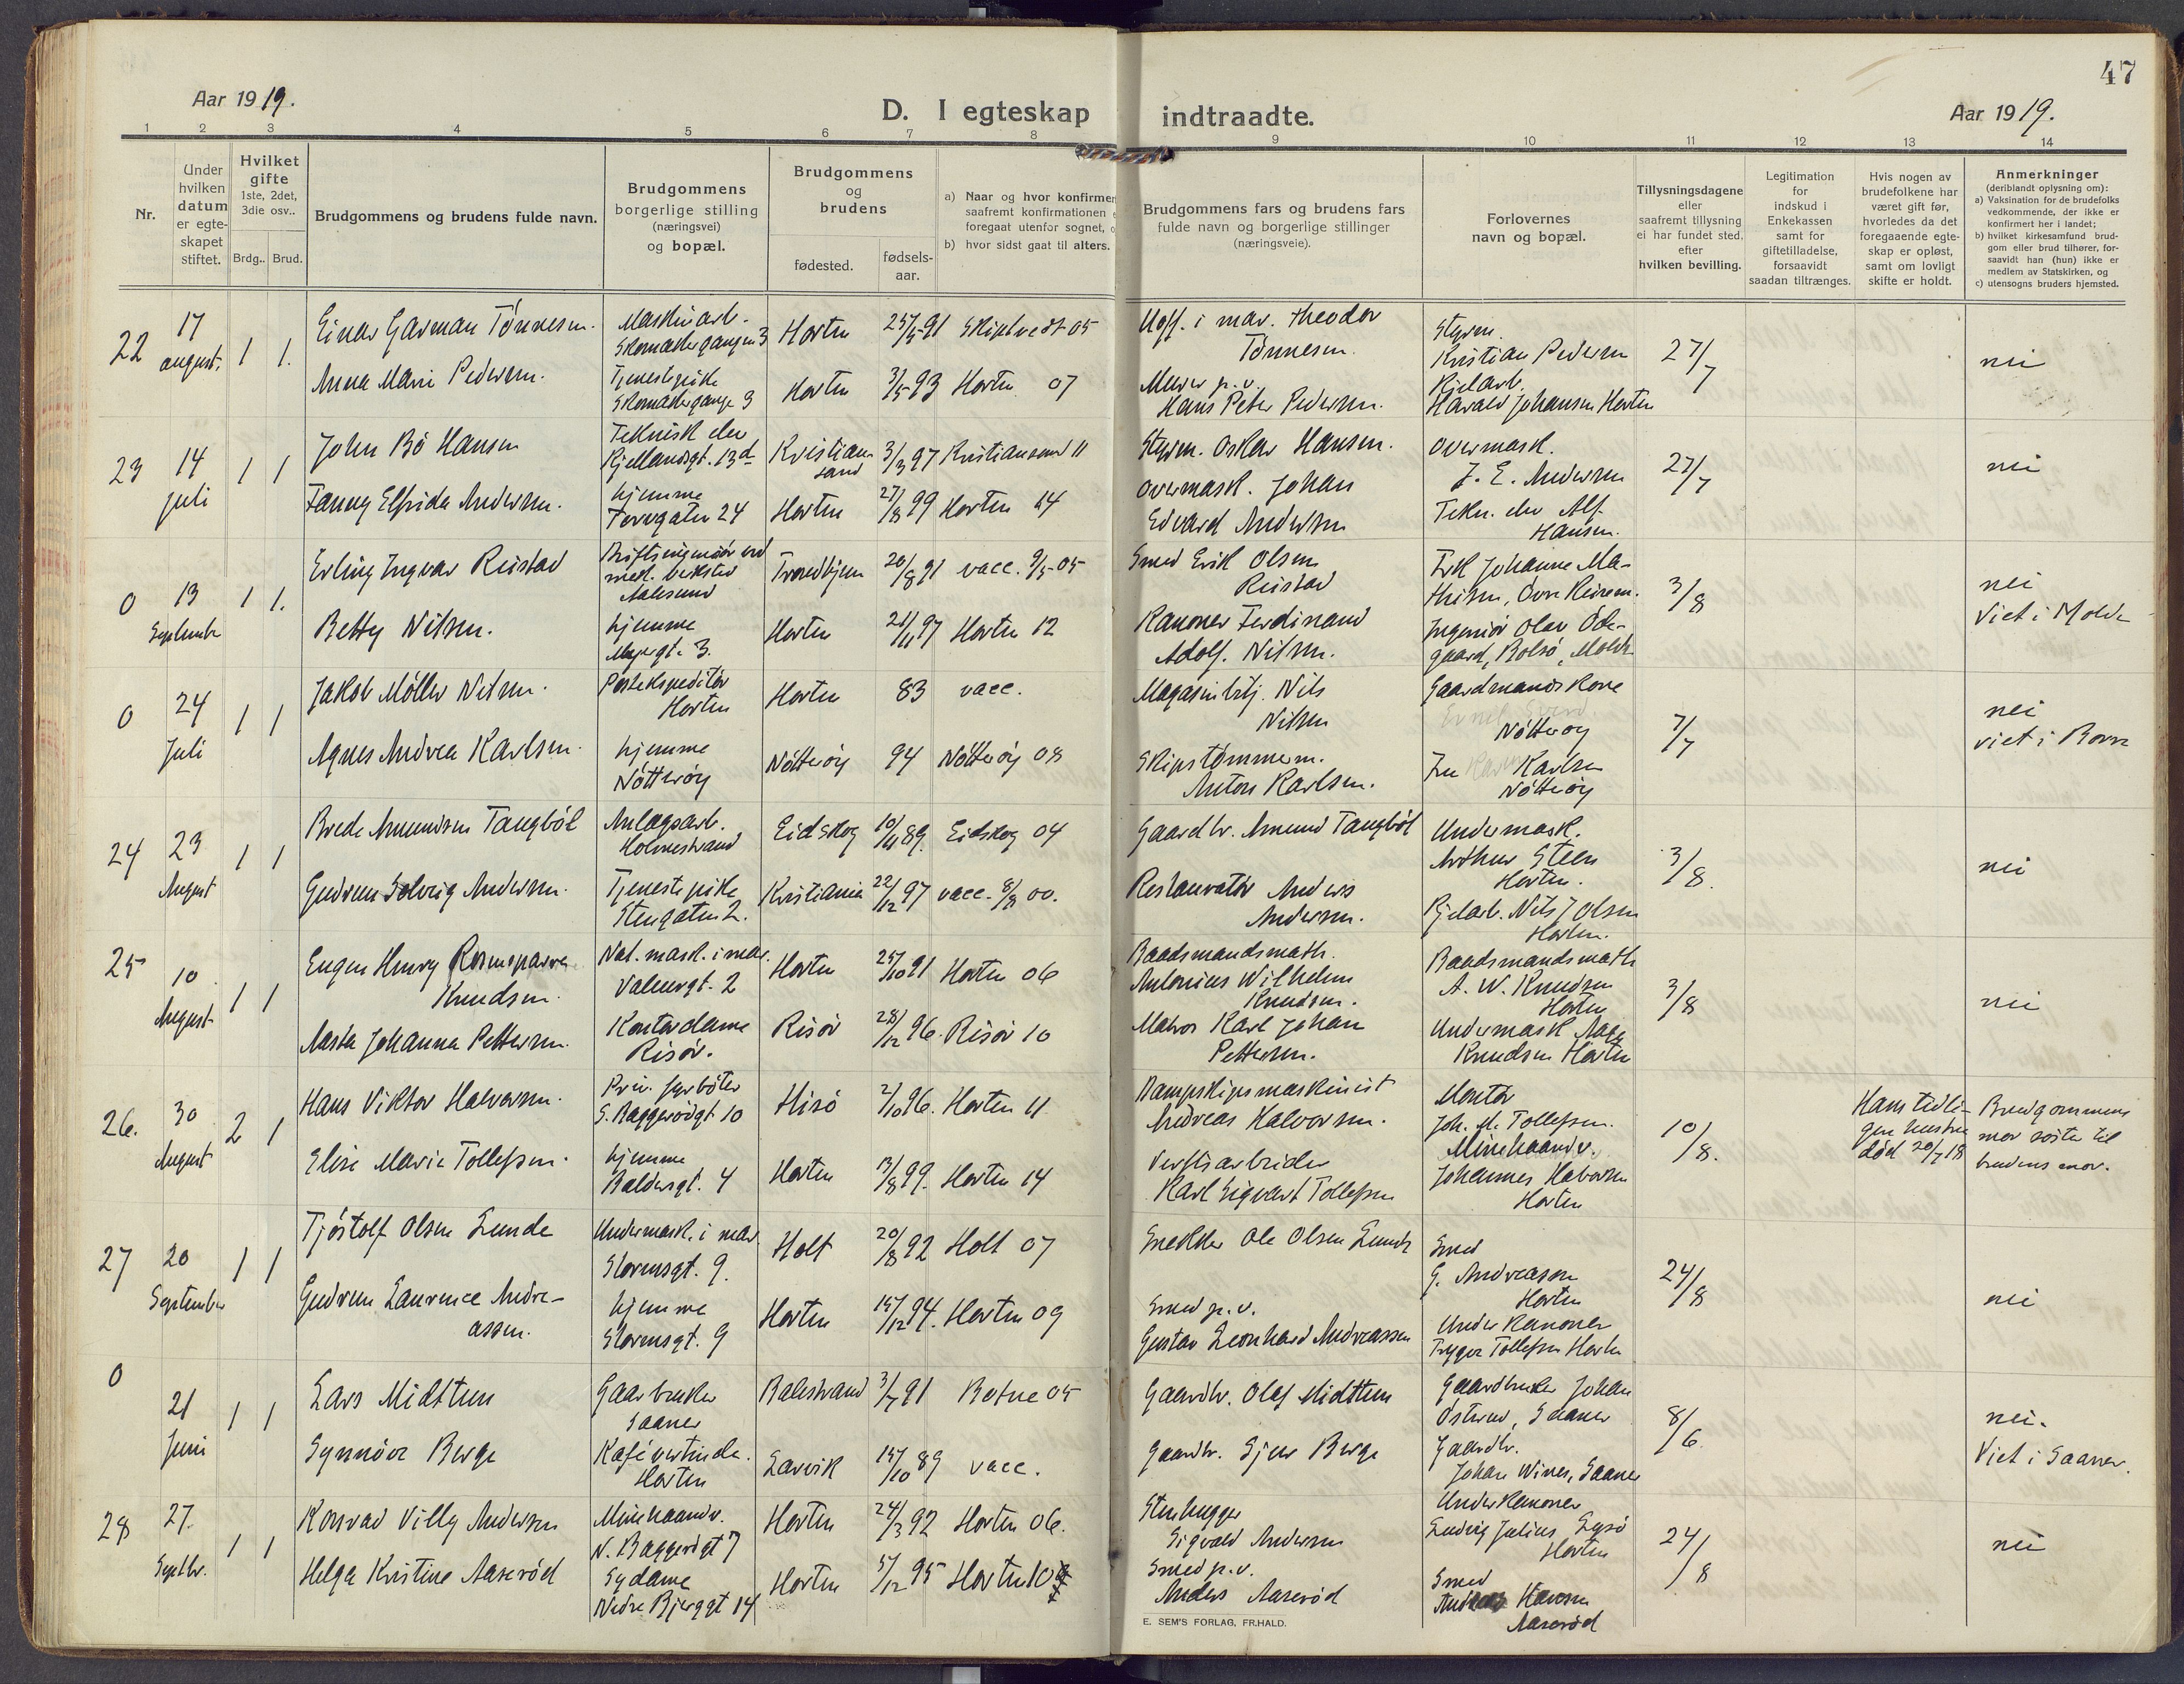 47
Aar 1919.
D. I egteskap indtraadte.
Aar 1919.
1 2 3 4 5 6 7 8 9 10 11 12 13 14
Nr.
Under hvilken datum er egte-skapet stiftet.
Hvilket gifte 1ste, 2det, 3die osv..
Brdg.. Brud.
Brudgommens og brudens fulde navn.
Brudgommens borgerlige stilling (næringsvei) og bopæl.
Brudgommens og brudens
fødested.
fødsels-aar.
a) Naar og hvor konfirmer
saafremt konfirmationen
foregaat utenfor sognet,
b) hvor sidst gaat til alters.
Brudgommens fars og brudens fars
fulde navn og borgerlige stillinger
(næringsveie).
Forlovernes
navn og bopæl.
Tillysningsdagene
eller
saafremt tillysning
ei har fundet sted,
efter
hvilken bevilling.
Legitimation
for
indskud i
Enkekassen
samt for
giftetilladelse,
forsaavidt
saadan tiltrænges.
Hvis nogen av
brudefolkene har
været gift før,
hvorledes da det
foregaaende egte-
skap er opløst,
samt om lovligt
skifte er holdt.
Anmerkninger
(deriblandt oplysning om):
a) Vaksination for de brudefolks
vedkommende, der ikke er
konfirmert her i landet;
b) hvilket kirkesamfund brud-
gom eller brud tilhører, for-
saavidt han (hun) ikke er
medlem av Statskirken, og
c) utensogns bruders hjemsted.
22 17 august. 1 1.
Einar Garman Tønnesen. Maskinarb. Skomakergangen 3 Horten 25/5 91 Skiptvedt 05
Uoff. i mar. Theodor Tønnesen. Styrm. Kristian Pedersen 27/7 nei
Anna Marie Pedersen. Tjenestepike Skomakergange 3 Horten 3/5 93 Horten 07
Murer p.v. Hans Peter Pedersen. Kjelarb. Harald Johansen Horten
23 14 juli 1 1
John Bö Hansen Teknisk elev Kjellandsgt. 13d Kristiansand 3/3 97 Kristiansand 11
Styrm. Oskar Hansen. Overmask. J. E. Andersen 27/7 nei
Fanny Elfrida Andersen. hjemme Torvgaten 24 Horten 27/8 99 Horten 14
Overmask. Johan Edvard Andersen Tekn. elev Alf Hansen.
0 13 September 1 1.
Erling Ingvar Reistad Driftsingeniør ved mek. verksted Aalesund Trondhjem 20/8 91 vacc. 9/5 05
Smed Erik Olsen Reistad 3/8 nei
Viet i Molde
Betty Nilsen. hjemme 3. Horten 21/11 97 Horten 12
Kanoner Ferdinand Adolf. Nilsen. Ingeniør Olav Öde-
gaard, Bolsö, Molde
0 24 Juli 1 1
Jakob Möller Nilsen. Postekspeditør Horten Horten 83 vacc.
Magasinbtj. Nils Nilsen Gaardmands Nötteröy 7/7 nei
viet i Borre
Agnes Andrea Karlsen. hjemme Nötteröy Nötteröy 94 Nötteröy 08
Skipstømmerm. Anton Karlsen. Karlsen Nötteröy
24 23 August 1 1
Brede Amundsen Tangböl Anlægsarb. Holmestrand Eidskog 10/11 89. Eidskog 04
Gaardbr. Amund Tangböl Undermask. Arthur Steen Horten. 3/8. nei
Gudrun Solveig Andersen. Tjenestepike Stengaten 2. Kristiania 22/12 97 vacc. 8/8 00.
Restauratør Anders Andersen. Kjelarb. Nils J Olsen Horten.
25 10 August 1 1
Eugen Henry Knudsen. Nat. mask. i mar. Valeurgt. 2 Horten 25/10 91 Horten 06
Baadsmandsmath. Antonius Wilhelm Knudsen. Baadsmandsmath A. W. Knudsen Horten 3/8 nei
Aasta Johanna Pettersen. Kontordame Risør. Risör 28/12 96. Risör 10
Matros Karl Johan Pettersen. Undermask Aage Knudsen Horten
26. 30 August 2 1
Hans Viktor Halvorsen. Prov. fyrbøter S. Baggerödgt 10 Hisö 2/10 96. Horten 11
Dampskipsmaskinist Andreas Halvorsen. Montør Joh. M. Tollefsen. 10/8.
Hans tidli-
gere hustru
död 20/7 18
Brudgommens
mor søster til
brudens mor.
Elise Marie Tollefsen. hjemme Baldersgt. 4 Horten 13/8 99. Horten 14
Verftsarbeider Karl Sigvart Tollefsen Minehaandv. Johannes Halvorsen Horten
27 20 September 1 1
Tjöstolf Olsen Lunde Undermask. i mar. Stormsgt. 9. Holt 20/8 92 Holt 07
Snekker Ole Olsen Lunde Smed G. Andreasen Horten 24/8 nei
Gudrun Laurence Andre-
assen. hjemme Stormsgt. 9 Horten 15/12 94. Horten 09
Smed p.v. Gustav Leonhard Andreassen Under kanoner Trygve Tollefsen Horten
0 21 Juni 1 1
Lars Midttun Gaarbruker Saaner Balestrand 3/7 91 Botne 05
Gaardbr. Olaf Midttun Gaardbruker Johan Österud, Saaner 8/6. nei.
Viet i Saaner.
Synnöve Berge Kaféværtinde. Horten Lavik 15/10 89 vacc.
Gaardbr. Sjur Berge Gaardbr. Johan Wines, Saaner
28 27. Septbr. 1 1
Konrad Villy Andersen Minehaandv. N. Baggerödgt 7 Horten 24/3 92 Horten 06.
Stenhugger Sigvald Andersen Underkanoner Ludvig Julius Horten 24/8 nei
Helga Kristine Aaseröd Sydame Nedre Bjerggt 14 Horten 5/12 95 Horten 10
Smed p.v. Anders Aaseröd Smed Hansen Aaseröd
E. SEM'S FORLAG, FR.HALD.